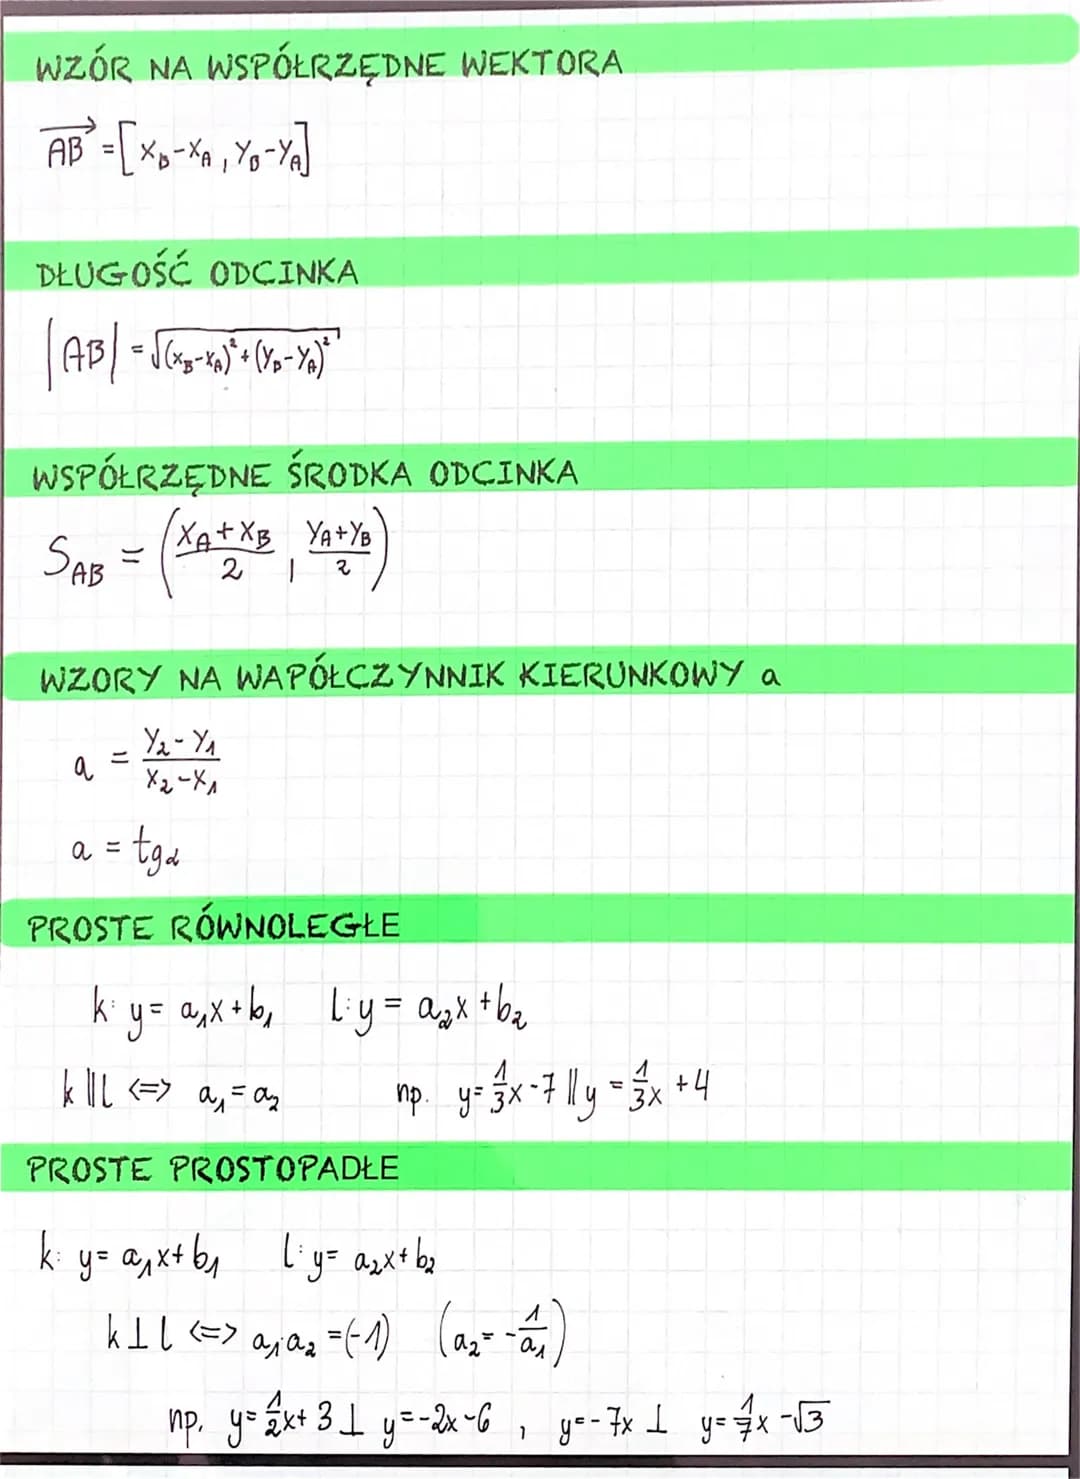 WZÓR NA WSPÓŁRZĘDNE WEKTORA
$\overrightarrow{AB} = [x_B - x_A, y_B - y_A]$
DŁUGOŚĆ ODCINKA
$|AB| = \sqrt{(x_B - x_A)^2 + (y_B - y_A)^2}$
WSPÓŁRZĘDNE ŚRODKA ODCINKA
$S_{AB} = \left(\frac{x_A + x_B}{2}, \frac{y_A + y_B}{2}\right)$
WZORY NA WAPÓŁCZYNNIK KIERUNKOWY a
$a = \frac{y_2 - y_1}{x_2 - x_1}$
$a = tg\alpha$
PROSTE RÓWNOLEGŁE
k: $y = a_1x + b_1$ l: $y = a_2x + b_2$
$k \parallel l \Leftrightarrow a_1 = a_2$ np. $y = \frac{1}{3}x - 7 \parallel y = \frac{1}{3}x + 4$
PROSTE PROSTOPADŁE
k: $y = a_1x + b_1$ l: $y = a_2x + b_2$
$k \perp l \Leftrightarrow a_1 \cdot a_2 = (-1)$ $\left(a_2 = -\frac{1}{a_1}\right)$
np. $y = \frac{1}{2}x + 3 \perp y = -2x - 6$ , $y = -7x \perp y = \frac{1}{7}x - \sqrt{3}$